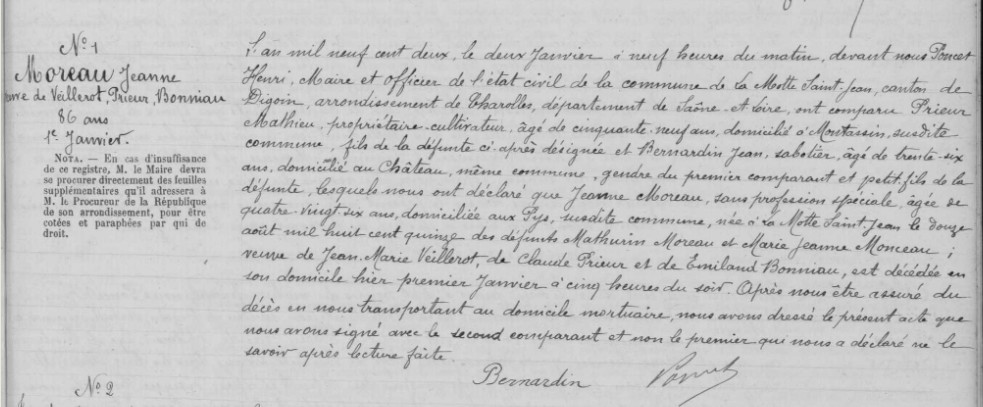 N° 1
Moreau Jeanne
veuve de Veillerot, Prieur, Bonniau
86 ans
1er Janvier.
NOTA. — En cas d'insuffisance
de ce registre, M. le Maire devra
se procurer directement des feuilles
supplémentaires qu'il adressera à
M. le Procureur de la République
de son arrondissement, pour être
cotées et paraphées par qui de
droit.
L'an mil neuf cent deux, le deux Janvier à neuf heures du matin, devant nous Poncet
Henri, Maire et officier de l'état civil de la commune de La Motte Saint-Jean, canton de
Digoin, arrondissement de Charolles, département de Saône-et-Loire, ont comparu Prieur
Mathieu, propriétaire-cultivateur, âgé de cinquante-neuf ans, domicilié à Montassin, susdite
commune, fils de la défunte ci-après désignée et Bernardin Jean, sabotier, âgé de trente-six
ans, domicilié au Château, même commune, gendre du premier comparant et petit-fils de la
défunte, lesquels nous ont déclaré que Jeanne Moreau, sans profession spéciale, âgée de
quatre-vingt-six ans, domiciliée aux Pys, susdite commune, née à La Motte Saint-Jean le douze
août mil huit cent quinze des défunts Mathurin Moreau et Marie Jeanne Monceau ;
veuve de Jean-Marie Veillerot, de Claude Prieur et de Emiland Bonniau, est décédée en
son domicile hier premier Janvier à cinq heures du soir. Après nous être assuré du
décès en nous transportant au domicile mortuaire, nous avons dressé le présent acte que
nous avons signé avec le second comparant et non le premier qui nous a déclaré ne le
savoir après lecture faite.
Bernardin Poncet
N° 2